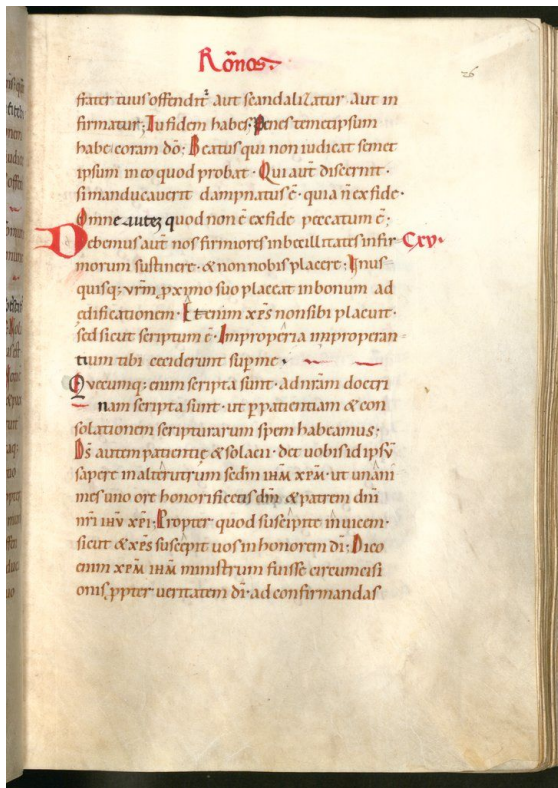 Rōnos.
26
frater tuus offendit᷑ aut scandalizatur aut in
firmatur; Tu fidem habes; Penes temetipsum
habe coram dō; Beatus qui non iudicat semet
ipsum in eo quod probat · Qui aut̄ discernit ·
si manducauerit dampnatus ē · quia n̄ ex fide ·
Omne autez quod non ē ex fide peccatum ē;
Debemus aut̄ nos firmiores inbecillitates infir C.xv.
morum sustinere · & non nobis placere; Unus
quisq; ur̄m ꝓximo suo placeat in bonum ad
edificationem · Etenim xp̄s non sibi placuit ·
sed sicut scriptum ē · Improperia improperan
tium tibi ceciderunt sup me ·
Quecumq; enim scripta sunt · ad nr̄am doctri
nam scripta sunt · ut ꝑ patientiam & con
solationem scripturarum spem habeamus;
Ds̄ autem patientie & solacii · det uobis id ipsū
sapere in alterutrum sedm̄ ihm̄ xpm̄ · ut unāni
mes uno ore honorificetis dm̄ & patrem dn̄i
nr̄i ihū xp̄i; Propter quod suscipite inuicem ·
sicut & xp̄s suscepit uos in honorem dī; Dico
enim xpm̄ ihm̄ ministrum fuisse circumcisi
onis ꝓpter ueritatem dī · ad confirmandas